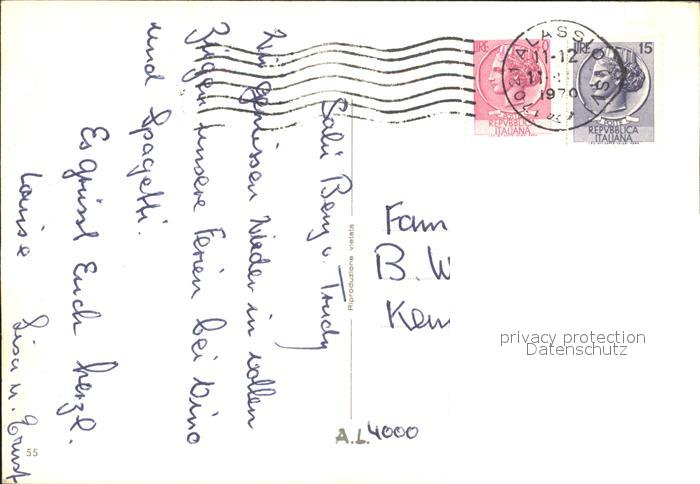 Salü Beny u. Trudy
Wir geniessen wieder in vollen
Zügen unsere Ferien bei Vino
und Spagetti.
Es grüsst Euch herzl.
Louise Lisa u. Ernst
Riproduzione vietata
LIRE
LIRE 15
POSTE
REPVBBLICA
ITALIANA
POSTE
REPVBBLICA
ITALIANA
ALASSIO
11-12
1970
Fam
B. W
Ken
privacy protection
Datenschutz
A.L. 4000
55